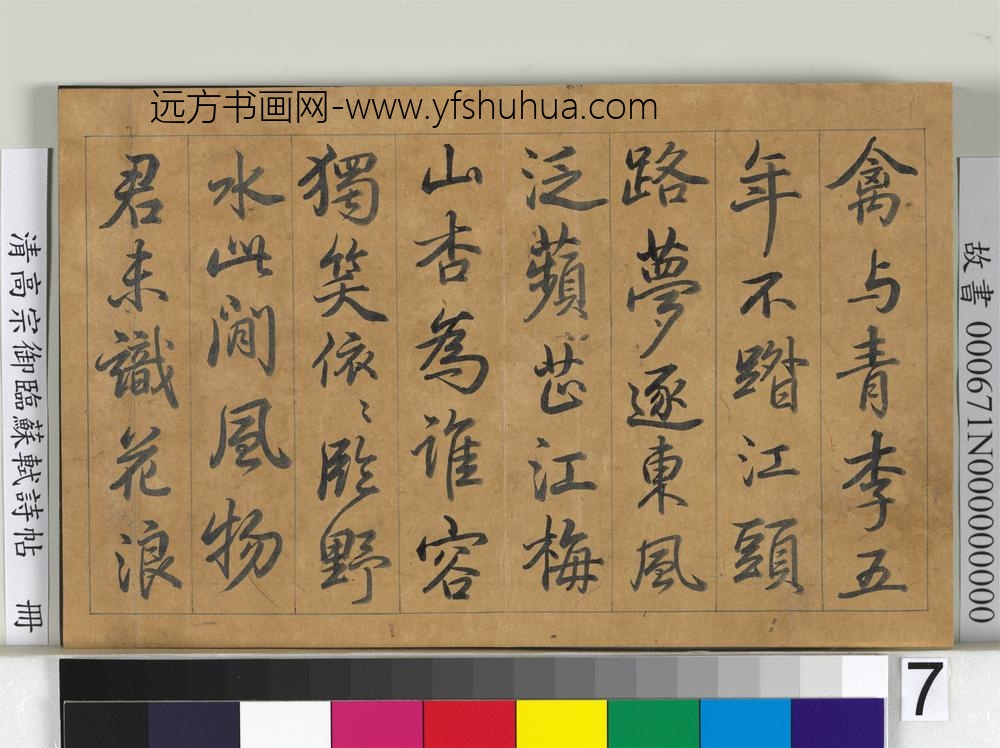 远方书画网-www.yfshuhua.com
禽与青李五
年不踏江頭
路夢逐東風
泛蘋芷江梅
山杏為誰容
獨笑依〻臨野
水此閒風物
君未識花浪
故書 000671N000000000
清高宗御臨蘇軾詩帖 冊
7